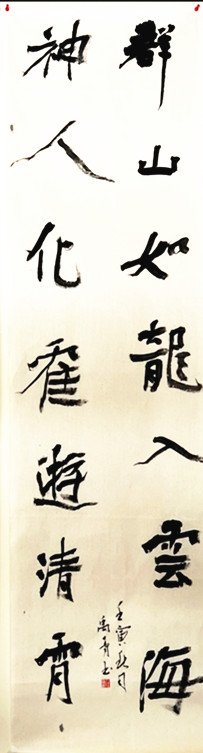 群山如龍入雲海
神人化霍遊清霄
壬寅秋月